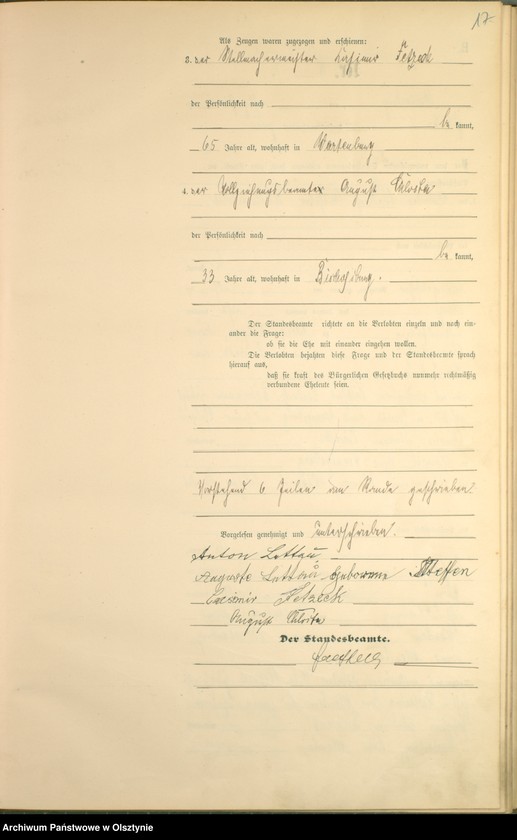 17
Als Zeugen waren zugezogen und erschienen:
3. der Stellmachermeister Kasimir
der Persönlichkeit nach
be kannt,
65 Jahre alt, wohnhaft in Wartenburg
4. der Vollziehungsbeamte August
der Persönlichkeit nach
be kannt,
33 Jahre alt, wohnhaft in Bischofsburg.
Der Standesbeamte richtete an die Verlobten einzeln und nach ein-
ander die Frage:
ob sie die Ehe mit einander eingehen wollen.
Die Verlobten bejahten diese Frage und der Standesbeamte sprach
hierauf aus,
daß sie kraft des Bürgerlichen Gesetzbuchs nunmehr rechtmäßig
verbundene Eheleute seien.
Vorstehend 6 Zeilen am Rande geschrieben.
Vorgelesen genehmigt und unterschrieben.
Anton Lettau
Auguste Lettau geborene Steffen
Casimir
August
Der Standesbeamte.
Archiwum Państwowe w Olsztynie